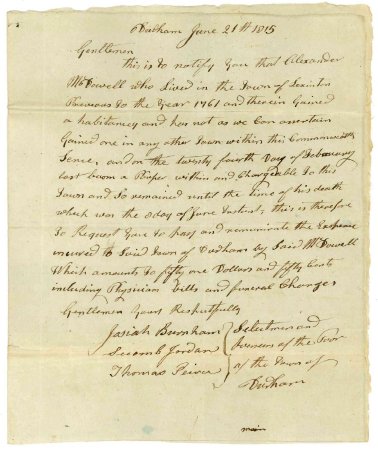 Durham June 21st 1815
Gentlemen
this is to notify You that Alexander
McDowell who Lived in the Town of Lexinton
Previous to the Year 1761 and therein Gained
a habitancy and has not as we Can asertain
Gained one in any other Town within this Commonwelth
Sence, and on the twenty fourth Day of February
Last becom a Poper within and Chargeable To this
Town and So remained until the time of his death
which was the day of June Instant, this is therefore
to Request You to pay and remunirate the Expence
incured to Said Town of Durham by Said McDowell
Which amounts to fifty one Dollars and fifty Cents
including Physician bills and funeral Charges
Gentlemen Yours Respectfully
Josiah Burnham
Secomb Jordan
Thomas Peirce
Selectmen and
Overseers of the Poor
of the Town of
Durham